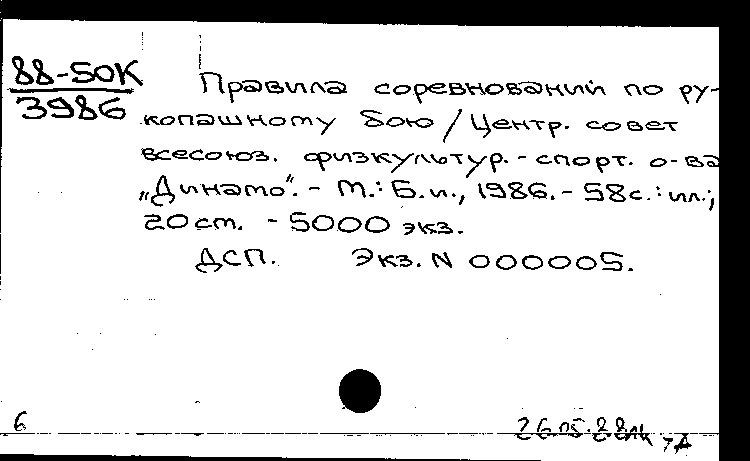 88-50К
3986
Правила соревнований по ру-
копашному бою / Центр. совет
всесоюз. физкультур.-спорт. о-ва
„Динамо“. - М.: Б.и., 1986. - 58с.: ил.;
20 см. - 5000 экз.
ДСП. Экз. N 000005.
6
26.05.88